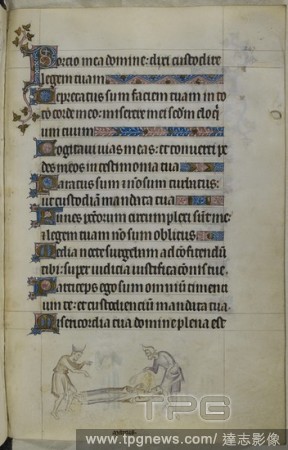 Porcio mea domine: dixi custodire
legem tuam
Deprecatus sum faciem tuam in to
to corde meo: miserere mei scdm eloqᵢ
um tuum
Cogitaui uias meas: et conuerti pe
des meos in testimonia tua
Paratus sum et non sum turbatus:
ut custodiam mandata tua
Funes pctorum circumplexi sunt me:
et legem tuam non sum oblitus
Media nocte surgebam ad confitendum
tibi: super iudicia iustificaconis tue
Particeps ego sum omnium timenci
um te: et custodiencium mandata tua
Misericordia tua domine plena est
TPG
www.tpgnews.com/達志影像